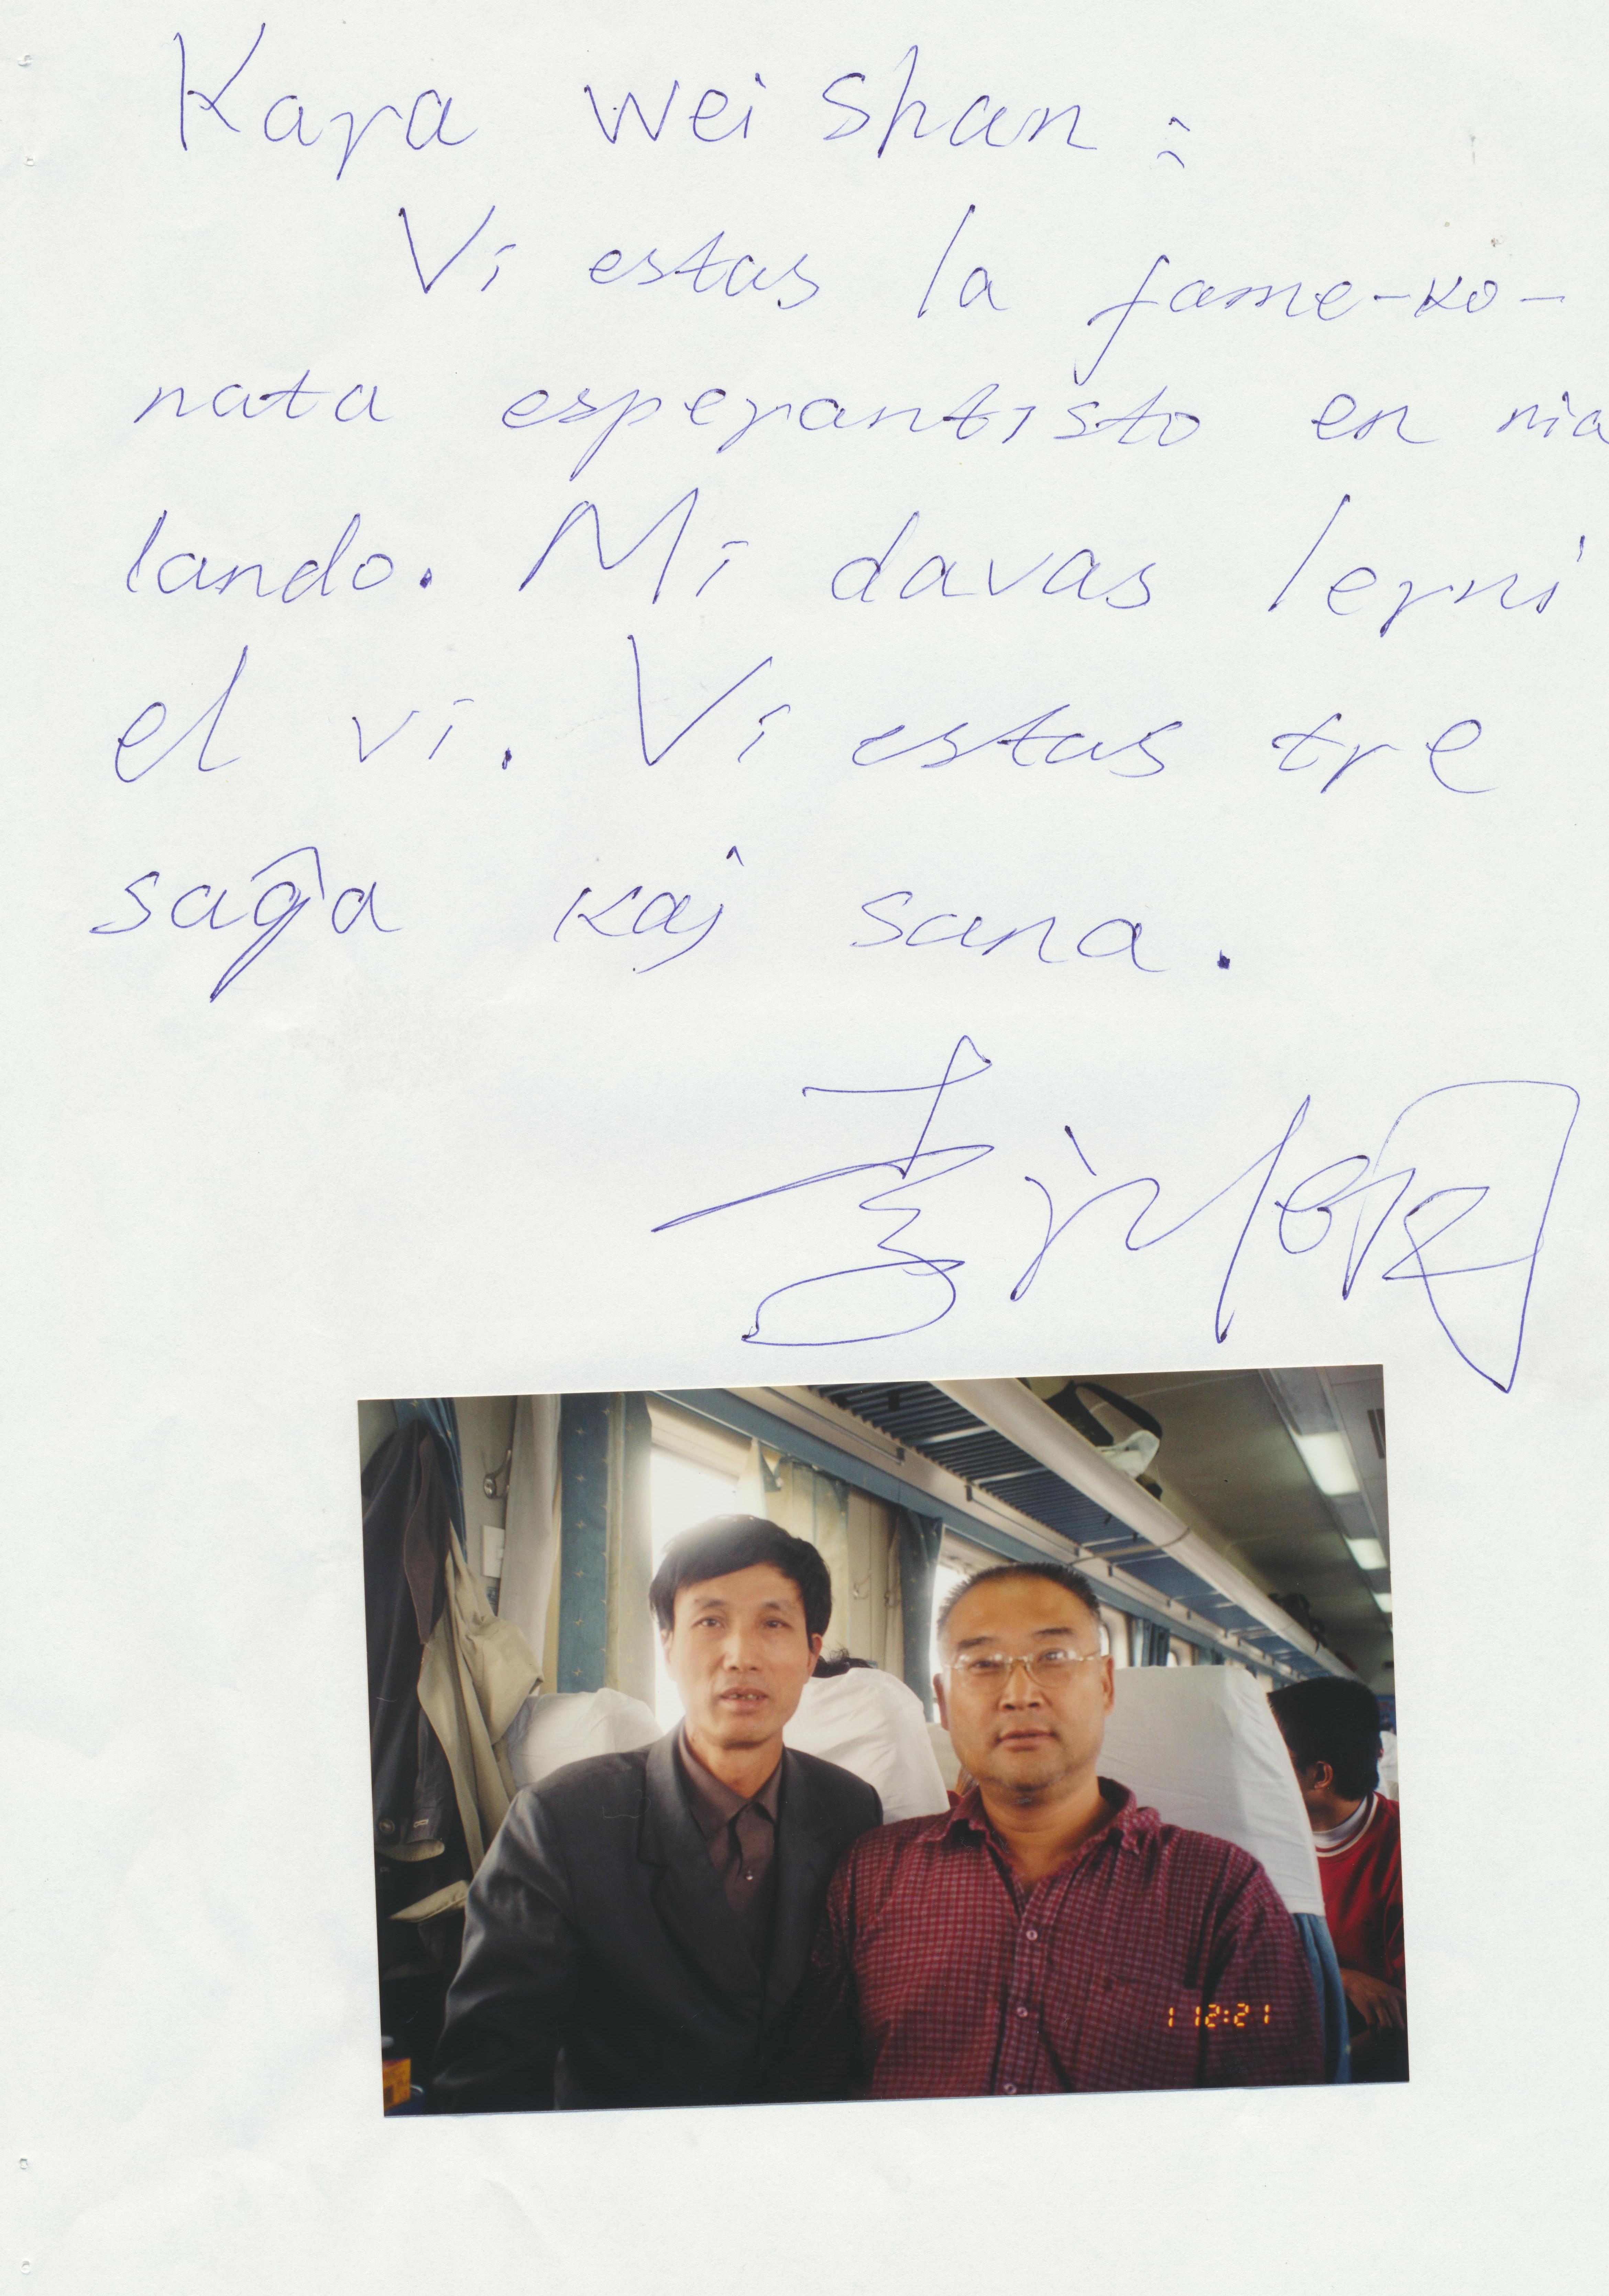 Kara Wei Shan :
Vi estas la fame-ko-
nata esperantisto en nia
lando. Mi davas lerni
el vi. Vi estas tre
saĝa kaj sana.
1 12:21